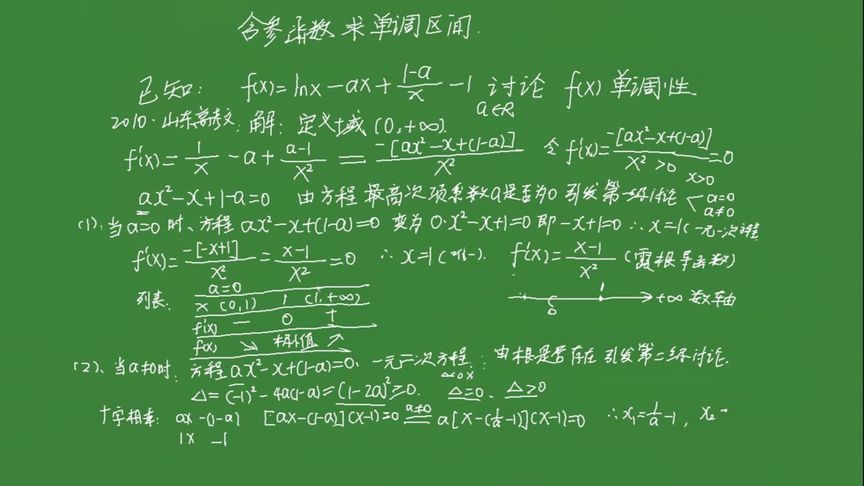 含参函数求单调区间.
已知: f(x)=lnx-ax+\frac{1-a}{x}-1 讨论 f(x)单调性.
a∈R
2010·山东高考文. 解: 定义域(0,+∞).
f'(x)=\frac{1}{x}-a+\frac{a-1}{x²}=\frac{-[ax²-x+(1-a)]}{x²} 令 f'(x)=\frac{-[ax²-x+(1-a)]}{x²>0}=0
x>0
ax²-x+1-a=0 由方程最高次项系数a是否为0引发第一环讨论 < a=0 a≠0
(1). 当a=0时、方程 ax²-x+(1-a)=0 变为 0·x²-x+1=0 即 -x+1=0 ∴x=1(一元一次方程
f'(x)=\frac{-[-x+1]}{x²}=\frac{x-1}{x²}=0 ∴x=1 f'(x)=\frac{x-1}{x²} (露根导函数)
列表: a=0
x (0,1) 1 (1,+∞)
f'(x) — 0 +
f(x) ↘ 极小值 ↗
0 1 +∞ 数轴
(2)、当a≠0时. 方程 ax²-x+(1-a)=0、一元二次方程: 由根是否存在引发第二环讨论.
△=(-1)²-4a(1-a)=(1-2a)²≥0. △=0、△>0
十字相乘: ax -(1-a) [ax-(1-a)](x-1)=0 \xlongequal{a≠0} a[x-(\frac{1}{a}-1)](x-1)=0 ∴x₁=\frac{1}{a}-1, x₂
1x -1